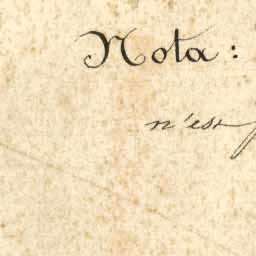 Nota :
n'est